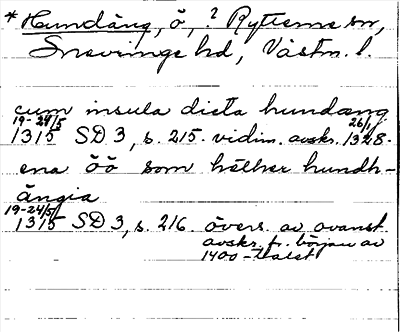 *Hundäng, ö, ? Rytterne sn,
Snevringe hd, Västm. l.
cum insula dicta hundæng
19-24/5 1315 SD 3, s. 215. vidim. avskr. 26/1 1328.
ena öö som hēther hundh-
ängia
19-24/5 1315 SD 3, s. 216. övers. av ovanst.
avskr. fr. början av
1400-talet